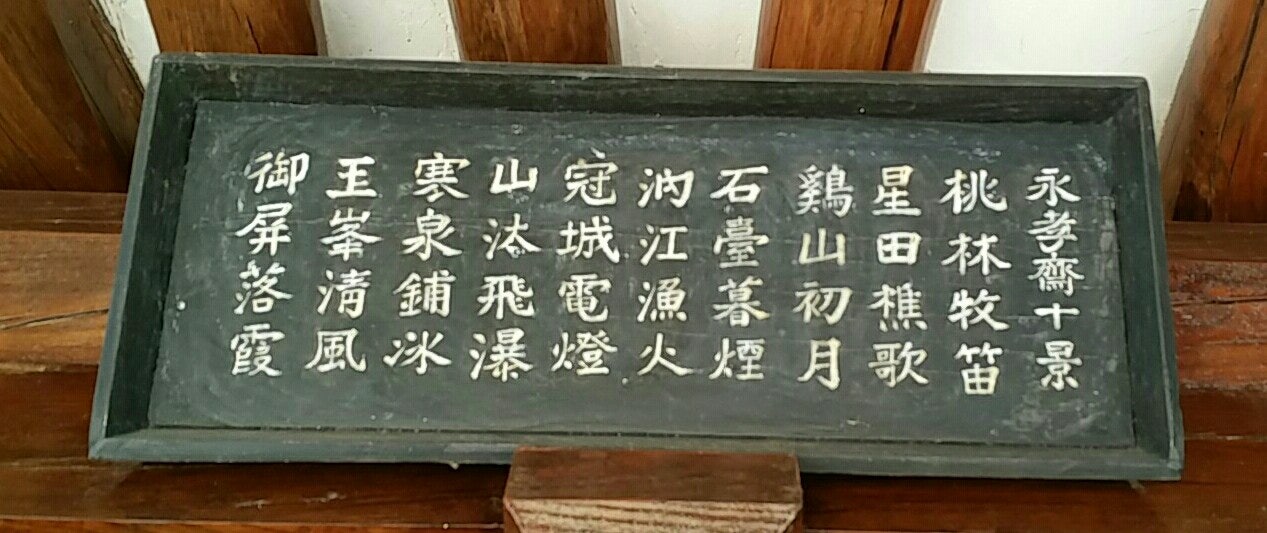 永孝齋十景
桃林牧笛
星田樵歌
鷄山初月
石臺暮煙
汭江漁火
冠城電燈
山汰飛瀑
寒泉鋪冰
王峯淸風
御屏落霞